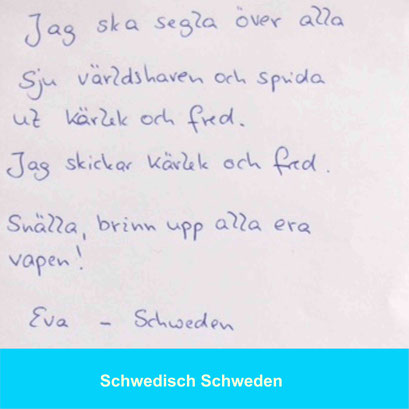 Jag ska segla över alla
Sju världshaven och sprida
ut kärlek och fred.
Jag skickar kärlek och fred.
Snälla, brinn upp alla era
vapen!
Eva - Schweden
Schwedisch Schweden